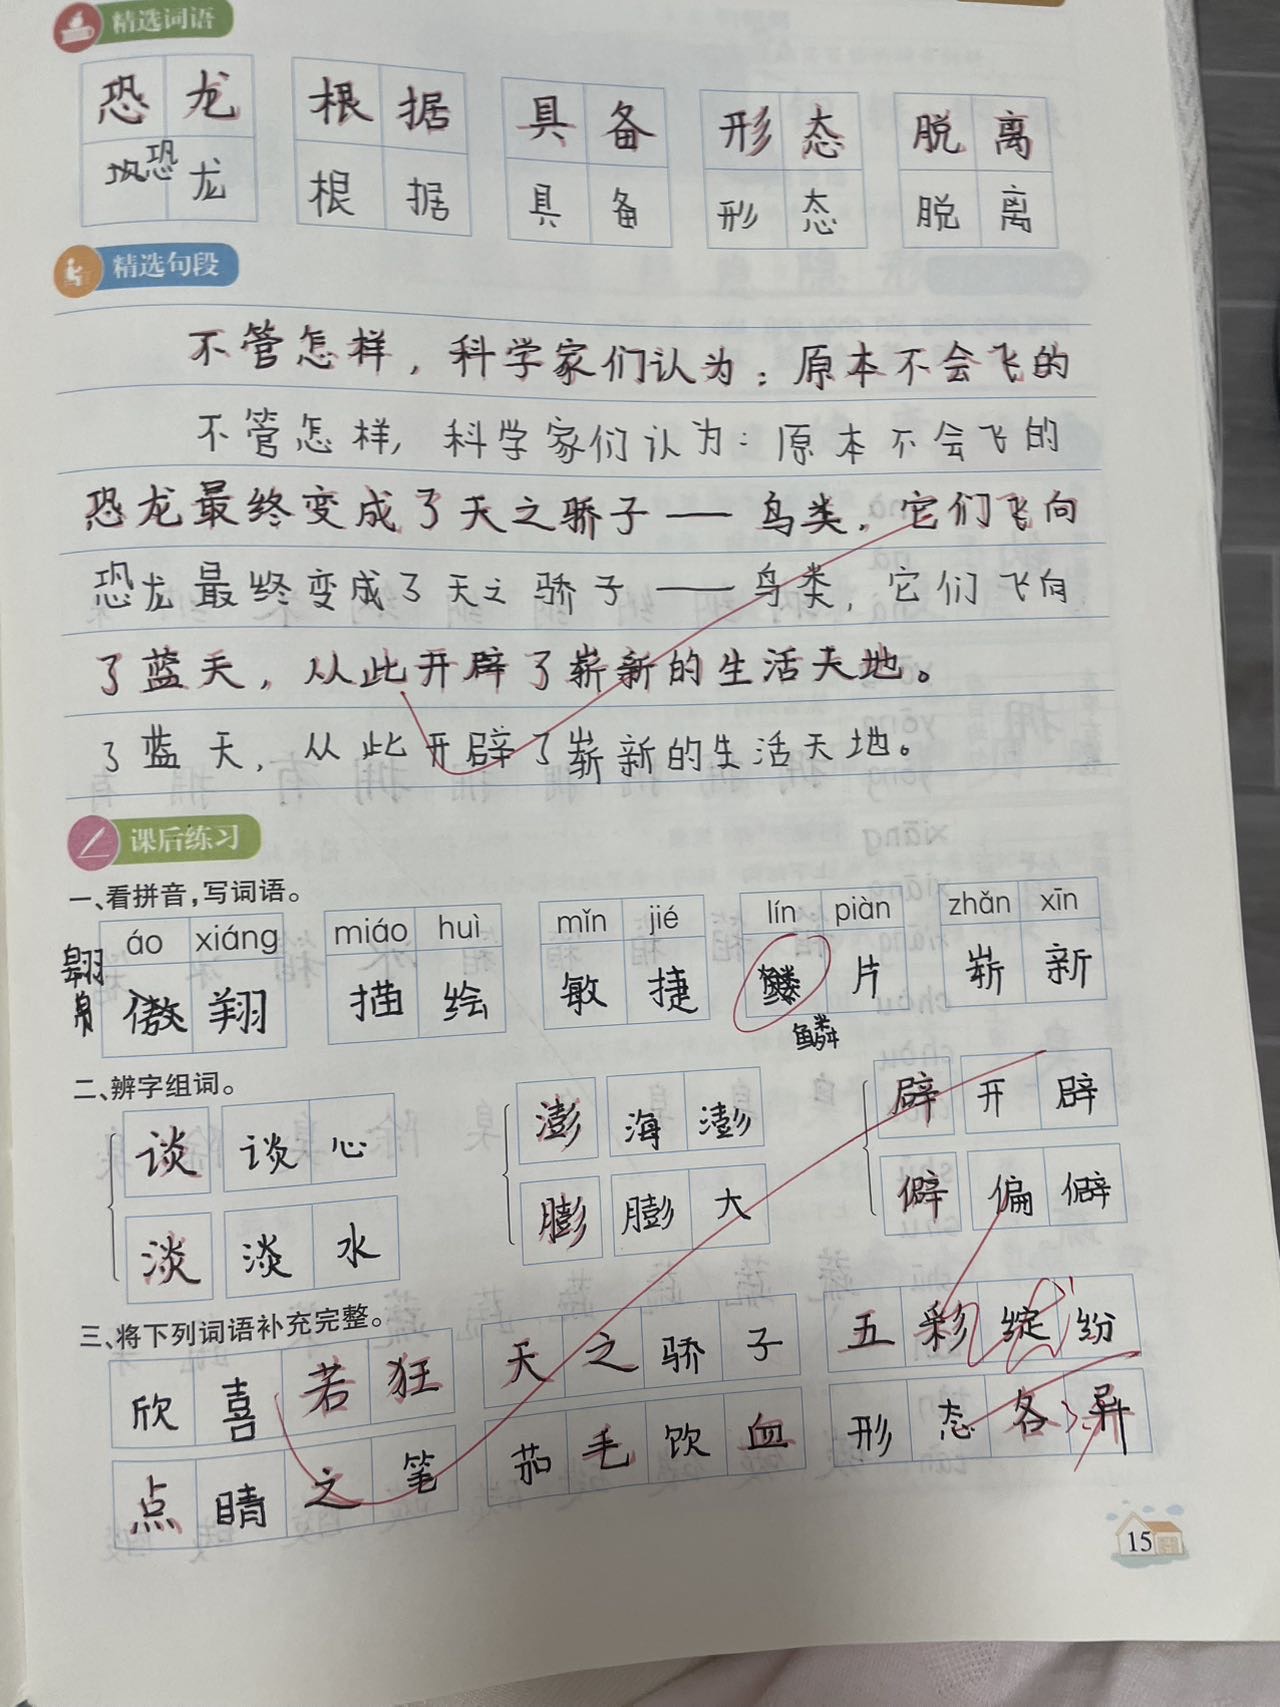 精选词语
恐龙 根据 具备 形态 脱离
恐龙 根据 具备 形态 脱离
精选句段
不管怎样，科学家们认为：原本不会飞的
不管怎样，科学家们认为：原本不会飞的
恐龙最终变成了天之骄子——鸟类，它们飞向
恐龙最终变成了天之骄子——鸟类，它们飞向
了蓝天，从此开辟了崭新的生活天地。
了蓝天，从此开辟了崭新的生活天地。
课后练习
一、看拼音，写词语。
áo xiáng miáo huì mǐn jié lín piàn zhǎn xīn
翔 描绘 敏捷 片 崭新
鳞
二、辨字组词。
谈 谈心 澎 海澎 辟 开辟
淡 淡水 膨 膨大 僻 偏僻
三、将下列词语补充完整。
欣喜若狂 天之骄子 五彩缤纷
点睛之笔 茹毛饮血 形态各异
15